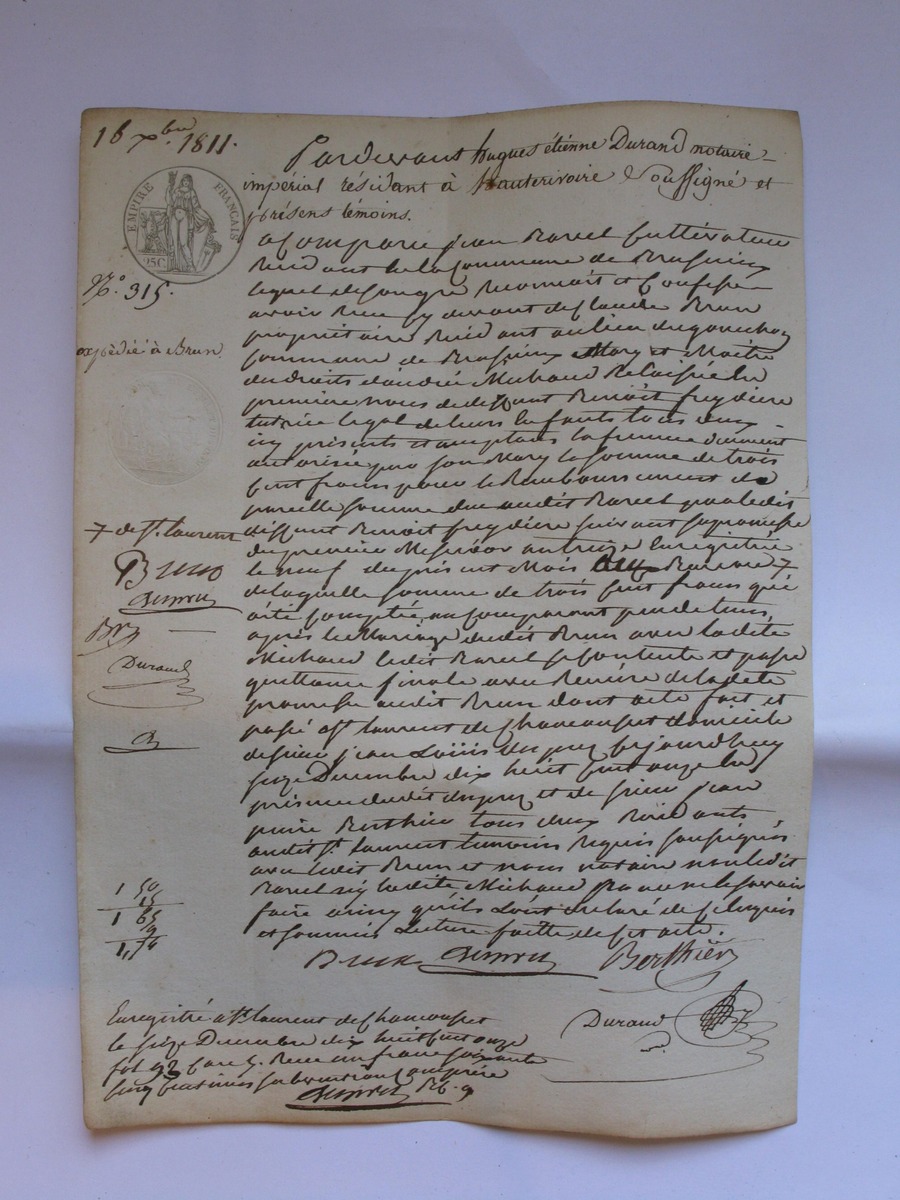 16 xbre 1811.
Pardevant hugues étienne Durand notaire
impérial résidant à hauterivoire soussigné et
présens témoins.
EMPIRE FRANÇAIS
25C
N.o 315.
expédié à Brun
a Comparu jean Ravel Cultivateur
Résidant de la Commune de Brussieu
lequel de Son gré Reconnoit et Confesse
avoir Reçu Cy devant de Claude Brun
propriétaire Résidant au lieu de
Commune de Brussieu Mary et Maitre
des droits Michaud Relaissée En
premiere noces de deffunt Benoit freydiere
tutrice légal de leurs Enfants tous deux
icy présents et acceptans la femme duement
autorisée par son Mary la Somme de trois
Cent francs pour le Remboursement de
pareille Somme due audit Ravel par ledit
deffunt Benoit freydiere Suivant sa promesse
du premier Messidor an treize Enregistrée
le neuf du présent Mois Reserve 7
de laquelle Somme de trois Cent francs qui a
été Comptée au Comparant
après le Mariage dudit Brun avec ladite
Michaud ledit Ravel Se Contente et passe
quittance finale avec Remise de ladite
promesse audit Brun dont acte fait et
passé a St laurent de Chamousset domicile
de Sieur jean Louis Cejourdhuy
Seize Decembre dix huit Cent onze En
présence dudit et de Sieur jean
Berthier tous deux Résidants
audit St. laurent temoins Requis Soussignés
avec ledit Brun et nous notaire non ledit
Ravel ny ladite Michaud pour ne le Savoir
faire ainsy qu'ils L'ont declaré de Ce Enquis
et Sommés Lecture faite de Cet acte.
7 de St. laurent
Brun
Durand
1 50
15
1 65
9
1,74
Brun
Berthier
Durand
Enregistré a St laurent de Chamousset
le Seize Decembre dix huit Cent onze
fol 92 Case 5. Reçu un franc soixante
Cinq Centimes Subvention Comprise